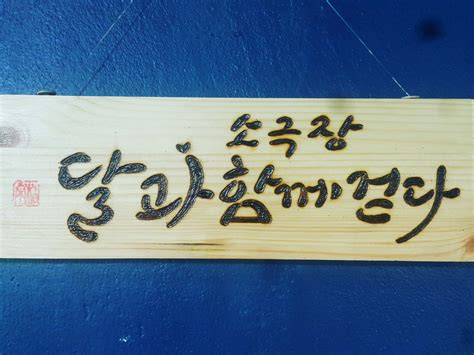 소극장
달과 함께 걷다